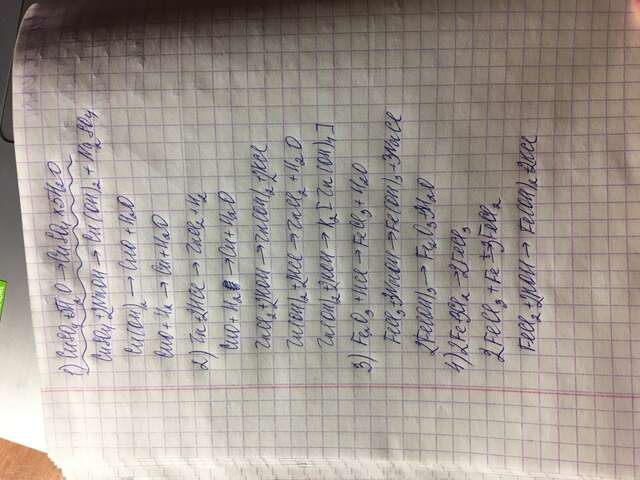 1) CuSO4+5H2O → CuSO4 x 5H2O
CuSO4+2NaOH → Cu(OH)2 + Na2SO4
Cu(OH)2 → CuO + H2O
CuO + H2 → Cu + H2O
2) Zn + 2HCl → ZnCl2 + H2
CuO + H2 → Cu + H2O
ZnCl2 + 2KOH → Zn(OH)2 + 2KCl
Zn(OH)2 + 2HCl → ZnCl2 + H2O
Zn(OH)2 + 2KOH → K2[Zn(OH)4]
3) Fe2O3 + HCl → FeCl3 + H2O
FeCl3 + 3NaOH → Fe(OH)3 + 3NaCl
2Fe(OH)3 → Fe2O3 + 3H2O
4) 2Fe + 3Cl2 → 2FeCl3
2FeCl3 + Fe → 3FeCl2
FeCl2 + 2KOH → Fe(OH)2 + 2KCl